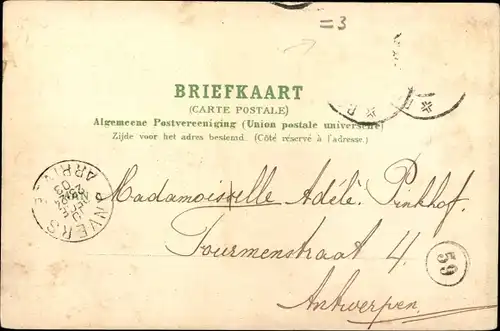 =3
BRIEFKAART
(CARTE POSTALE)
Algemeene Postvereeniging (Union postale universelle)
Zijde voor het adres bestemd. (Côté réservé à l'adresse.)
ANVERS
ARRIVÉE
Madamoiselle Adélé Pinkhof.
Tourmenstraat 4.
59
Antwerpen.